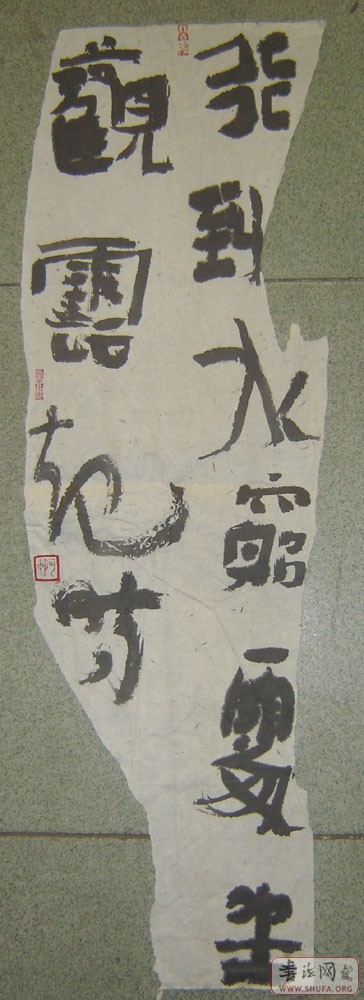 行到水窮處坐
觀雲起時
書法网
WWW.SHUFA.ORG